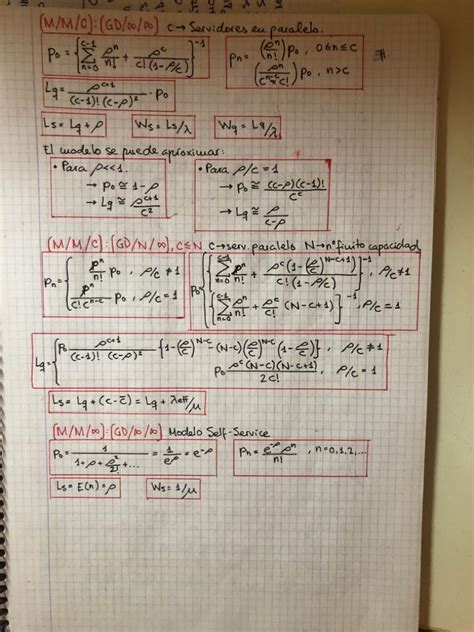 (M/M/C):(GD/∞/∞) c→ Servidores en paralelo.
p₀ = {∑_{n=0}^{c-1} ρⁿ/n! + ρᶜ/(c!(1-ρ/c))}⁻¹
pₙ = { (ρⁿ/n!) p₀ , 0≤n≤c
(ρⁿ/(c^{n-c} c!)) p₀ , n>c
Lq = ρ^{c+1}/((c-1)! (c-ρ)²) · p₀
Ls = Lq + ρ Ws = Ls/λ Wq = Lq/λ
El modelo se puede aproximar:
· Para ρ<<1. · Para ρ/c = 1
→ p₀ ≅ 1-ρ → p₀ ≅ (c-ρ)(c-1)!/cᶜ
→ Lq ≅ ρ^{c+1}/c² → Lq ≅ ρ/(c-ρ)
(M/M/C):(GD/N/∞), c≤N c→serv. paralelo N→nº finito capacidad
pₙ = { ρⁿ/n! p₀ , ρ/c ≠ 1
ρⁿ/(c! c^{n-c}) p₀ , ρ/c = 1
p₀ { {∑_{n=0}^{c-1} ρⁿ/n! + ρᶜ(1-(ρ/c)^{N-c+1})/(c!(1-ρ/c))}⁻¹ , ρ/c ≠ 1
{∑_{n=0}^{c-1} ρⁿ/n! + ρᶜ/c! (N-c+1)}⁻¹ , ρ/c = 1
Lq = { p₀ ρ^{c+1}/((c-1)! (c-ρ)²) {1-(ρ/c)^{N-c} (N-c)(ρ/c)^{N-c} (1-ρ/c)} , ρ/c ≠ 1
p₀ ρᶜ(N-c)(N-c+1)/(2c!) , ρ/c = 1
Ls = Lq + (c-c̄) = Lq + λeff/μ
(M/M/∞):(GD/∞/∞) Modelo Self-Service
p₀ = 1/(1+ρ+ρ²/2!+...) = 1/e^ρ = e^{-ρ}
pₙ = e^{-ρ} ρⁿ/n! , n=0,1,2,...
Ls = E(n) = ρ Ws = 1/μ